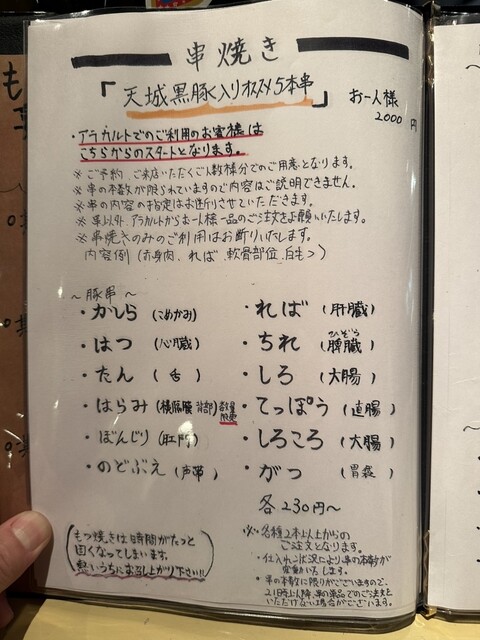 串焼き
「天城黒豚入りオススメ5本串」 お一人様
2000円
・アラカルトでのご利用のお客様は
こちらからのスタートとなります。
※ご予約、ご来店いただくご人数様分でのご用意となります。
※串の本数が限られていますので内容はご説明できません。
※串の内容の指定はお断りさせていただきます。
※串以外、アラカルトからお一人様一品のご注文をお願いいたします。
※串焼きのみのご利用はお断りいたします。
内容例(赤身肉、れば、軟骨部位、白もつ)
〜豚串〜
・かしら(こめかみ)
・はつ(心臓)
・たん(舌)
・はらみ(横隔膜 背部)数量限定
・ぼんじり(肛門)
・のどぶえ(声帯)
・ればー(肝臓)
・ちれ(脾臓)
ひぞう
・しろ(大腸)
・てっぽう(直腸)
・しろころ(大腸)
・がつ(胃袋)
各230円〜
※各種2本以上からの
ご注文となります。
・仕入れ状況により串の本数が
変動いたします。
・串の本数に限りがございますので、
21時以降、串の単品でのご注文を
いただけない場合がございます。
もつ焼きは時間がたつと
固くなってしまいます。
熱いうちにお召し上がり下さい!!